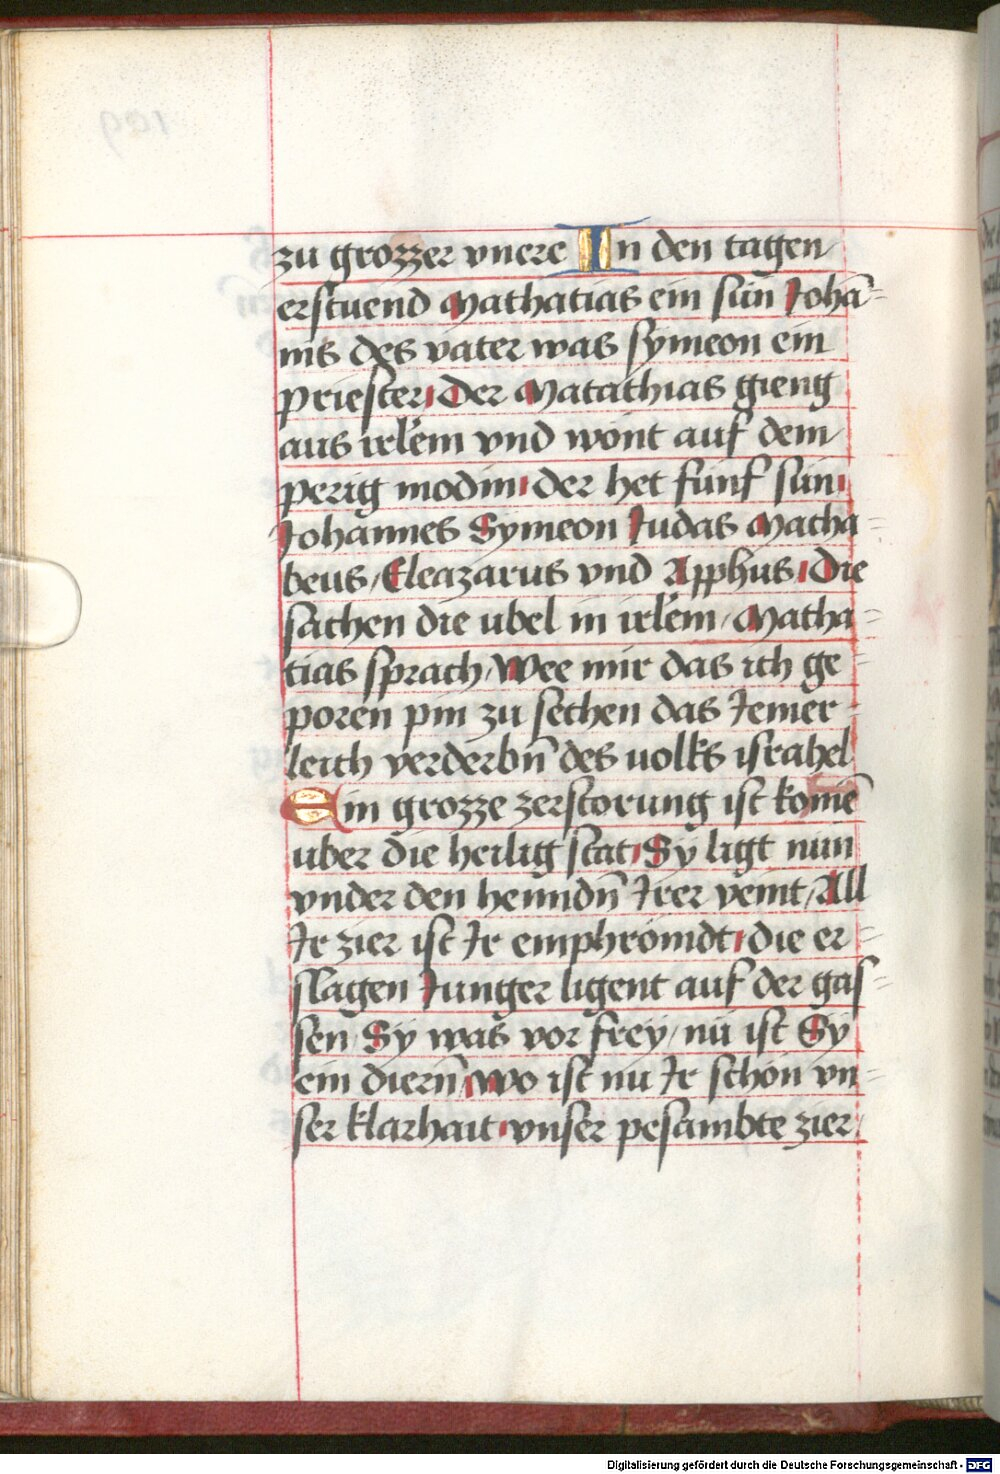 zu grozzer vnere In den tagen
erstuend Mathatias ein sün Johā-
nis des vater was symeon ein
priester der Matathias gieng
aus irl̄em vnd wont auf dem
perig modin der het fünf sün
Johannes Symeon Judas Macha-
beus / Eleazarus vnd Apphus die
sachen die ubel in irl̄em / Matha-
tias sprach / Wee mir das ich ge
poren pin zu sechen das Jemer-
leich verderbn̄ des uolks israhel
Ein grozze zerstorung ist komē
uber die heilig stat Sy ligt nün
vnder den henndn̄ Irer veint / All
Ir zier ist Ir emphrömdt die er-
slagen Junger ligent auf der gas-
sen / Sy was vor frey / nü ist Sy
ein diern̄ wo ist nü Ir schön vn-
ser klarhait vnser pesambte zier
109
Digitalisierung gefördert durch die Deutsche Forschungsgemeinschaft - DFG